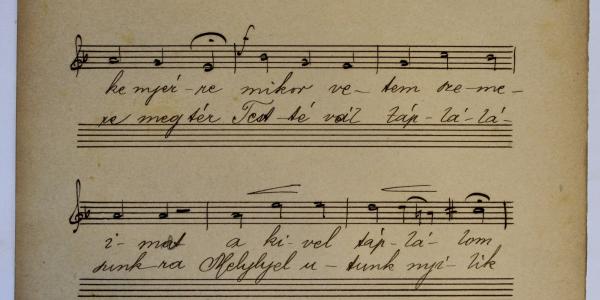 kenyér-re mikor ve-tem sze-me-
re megtér Test-té vál táp-lá-lá-
i-mat a ki-vel táp-lá-lom
sunk-ra Melylyel u-tunk nyi-lik